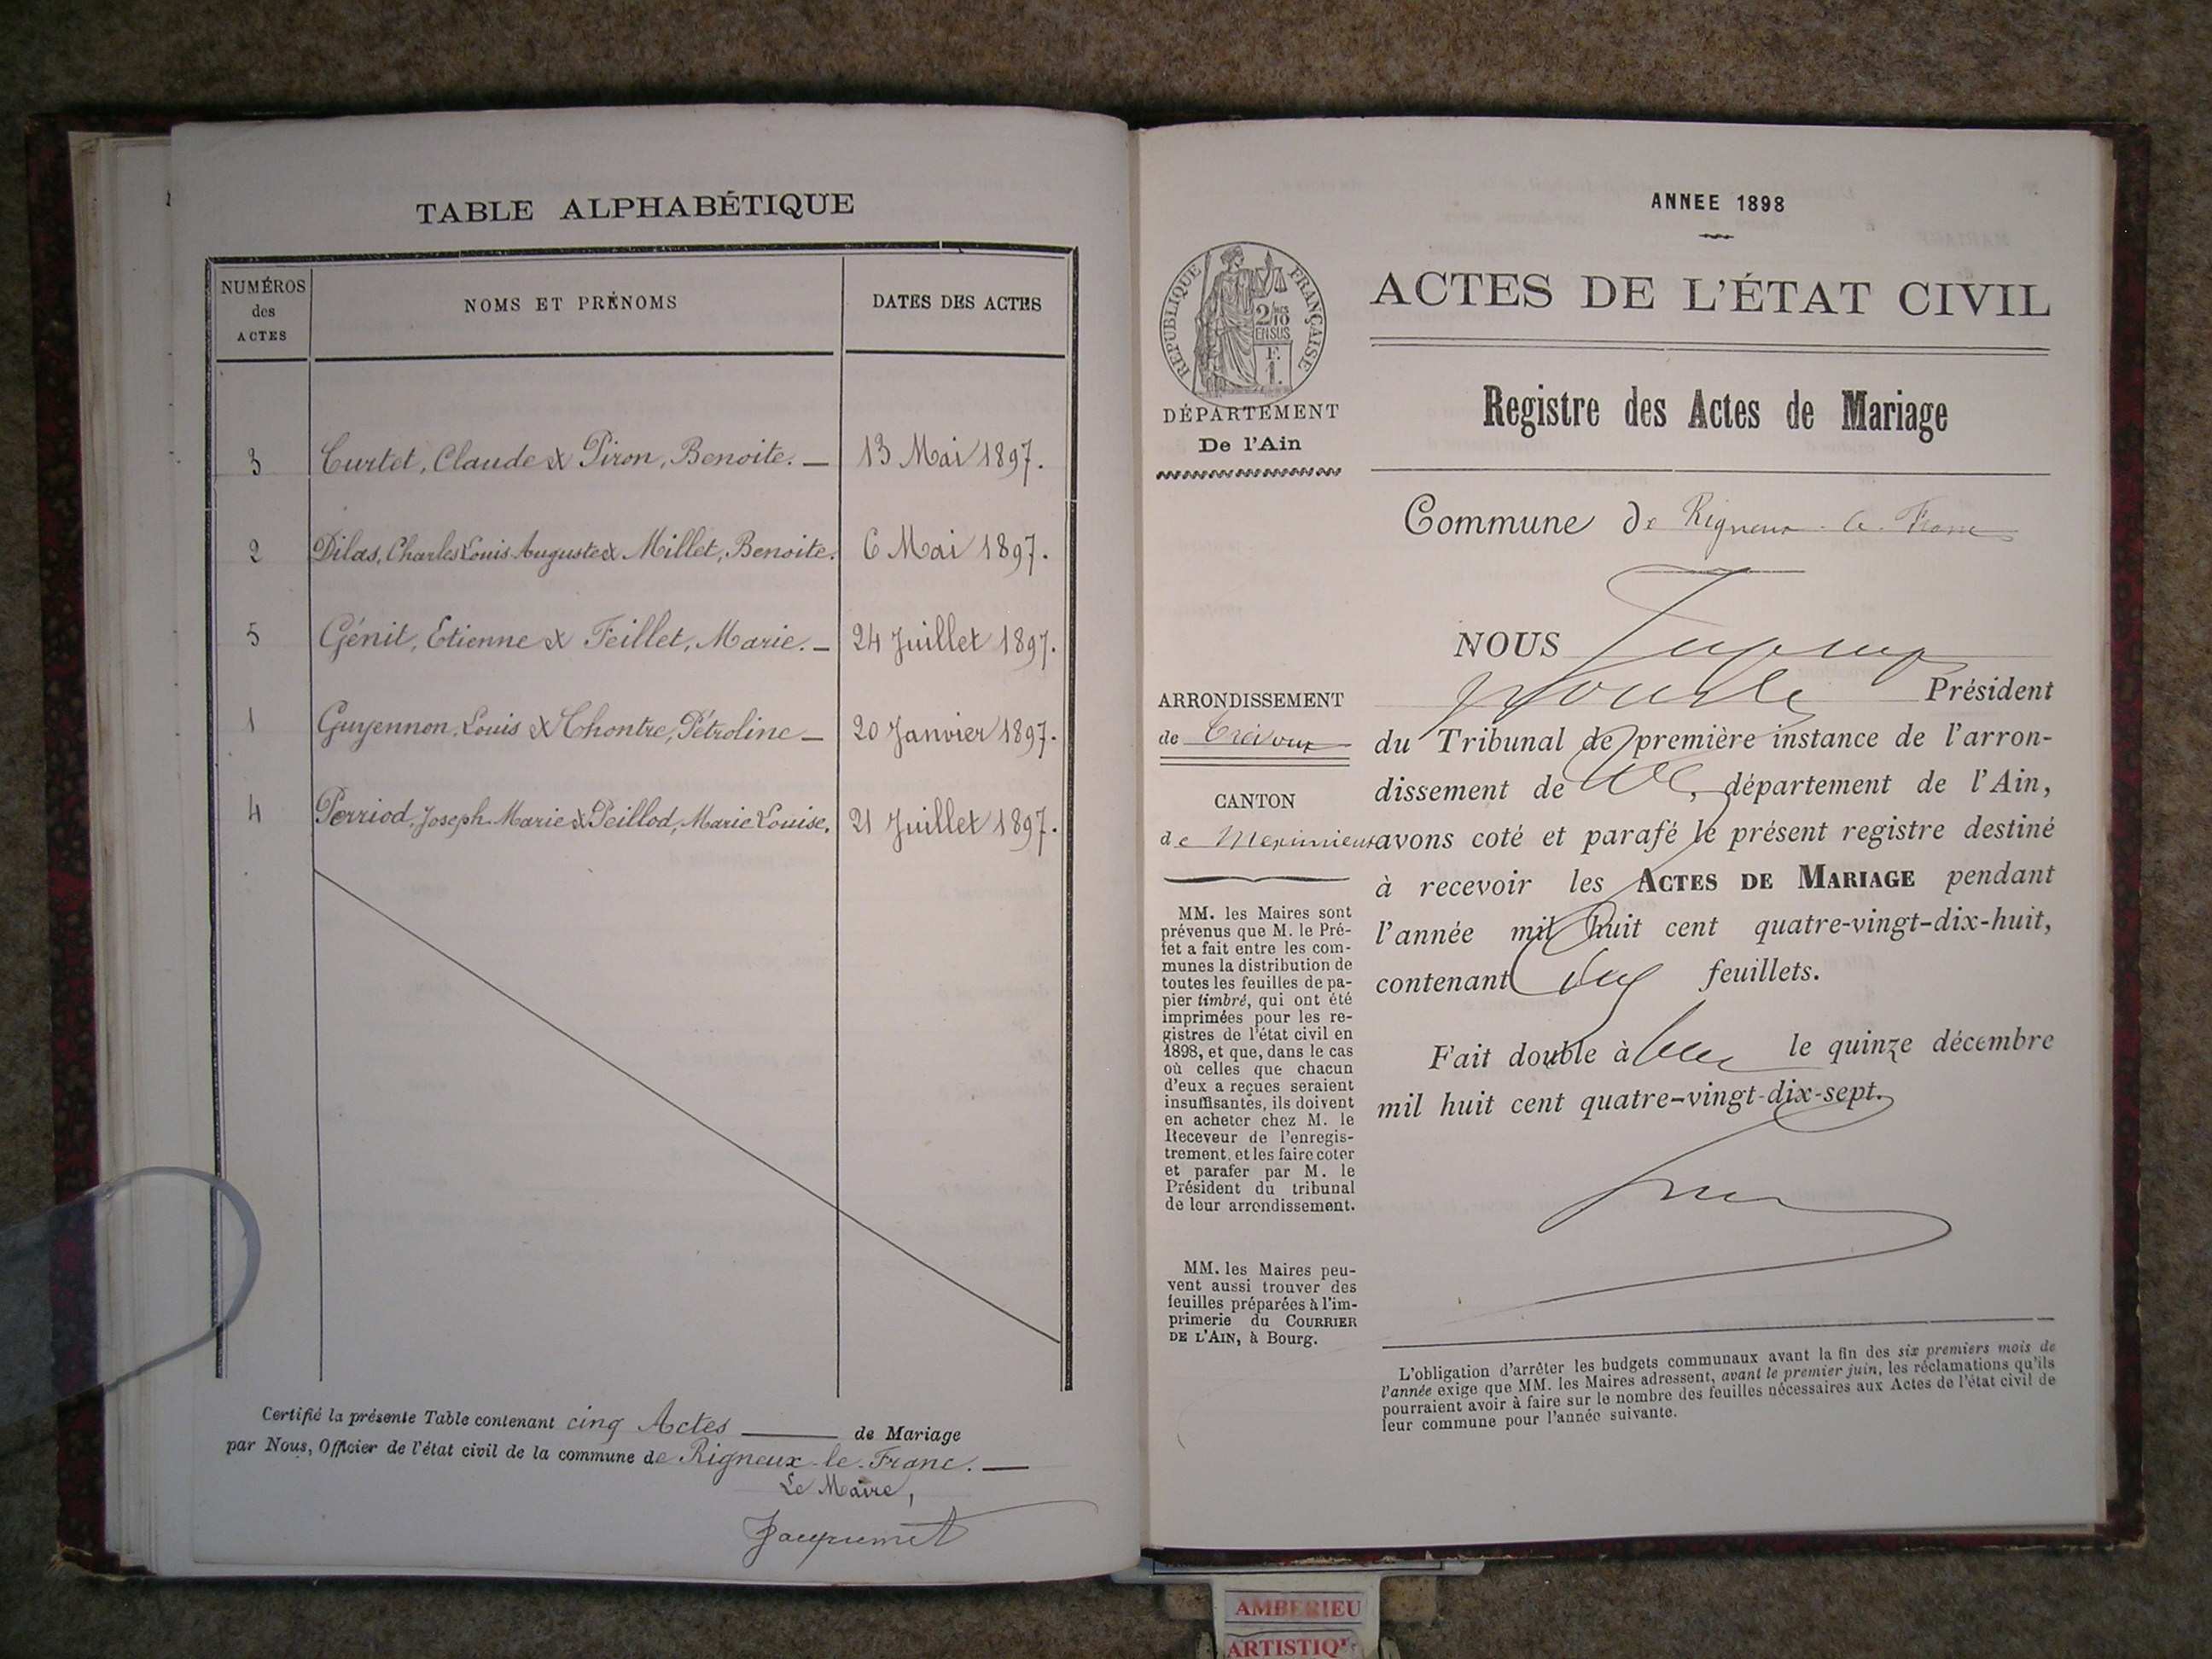 TABLE ALPHABÉTIQUE
NUMÉROS des ACTES
NOMS ET PRÉNOMS
DATES DES ACTES
3 Curtet, Claude & Piron, Benoite. — 13 Mai 1897.
2 Dilas, Charles Louis Auguste & Millet, Benoite. 6 Mai 1897.
5 Génit, Etienne & Feillet, Marie. — 24 Juillet 1897.
1 Guyennon, Louis & Chontre, Pétroline — 20 Janvier 1897.
4 Perriod, Joseph-Marie & Peillod, Marie Louise. 21 Juillet 1897.
Certifié la présente Table contenant cinq Actes — de Mariage
par Nous, Officier de l'état civil de la commune de Rigneux-le-Franc. —
Le Maire,
Jacquemet
ANNEE 1898
RÉPUBLIQUE FRANÇAISE
2/10
EN SUS
F.
1.
ACTES DE L'ÉTAT CIVIL
DÉPARTEMENT
De l'Ain
Registre des Actes de Mariage
Commune de Rigneux-le-Franc
ARRONDISSEMENT
de Trévoux
CANTON
de Meximieux
MM. les Maires sont
prévenus que M. le Pré-
fet a fait entre les com-
munes la distribution de
toutes les feuilles de pa-
pier timbré, qui ont été
imprimées pour les re-
gistres de l'état civil en
1898, et que, dans le cas
où celles que chacun
d'eux a reçues seraient
insuffisantes, ils doivent
en acheter chez M. le
Receveur de l'enregis-
trement, et les faire coter
et parafer par M. le
Président du tribunal
de leur arrondissement.
MM. les Maires peu-
vent aussi trouver des
feuilles préparées à l'im-
primerie du COURRIER
DE L'AIN, à Bourg.
NOUS
Président
du Tribunal de première instance de l'arron-
dissement de , département de l'Ain,
avons coté et parafé le présent registre destiné
à recevoir les ACTES DE MARIAGE pendant
l'année mil huit cent quatre-vingt-dix-huit,
contenant feuillets.
Fait double à le quinze décembre
mil huit cent quatre-vingt-dix-sept.
L'obligation d'arrêter les budgets communaux avant la fin des six premiers mois de
l'année exige que MM. les Maires adressent, avant le premier juin, les réclamations qu'ils
pourraient avoir à faire sur le nombre des feuilles nécessaires aux Actes de l'état civil de
leur commune pour l'année suivante.
AMBERIEU
ARTISTIQU